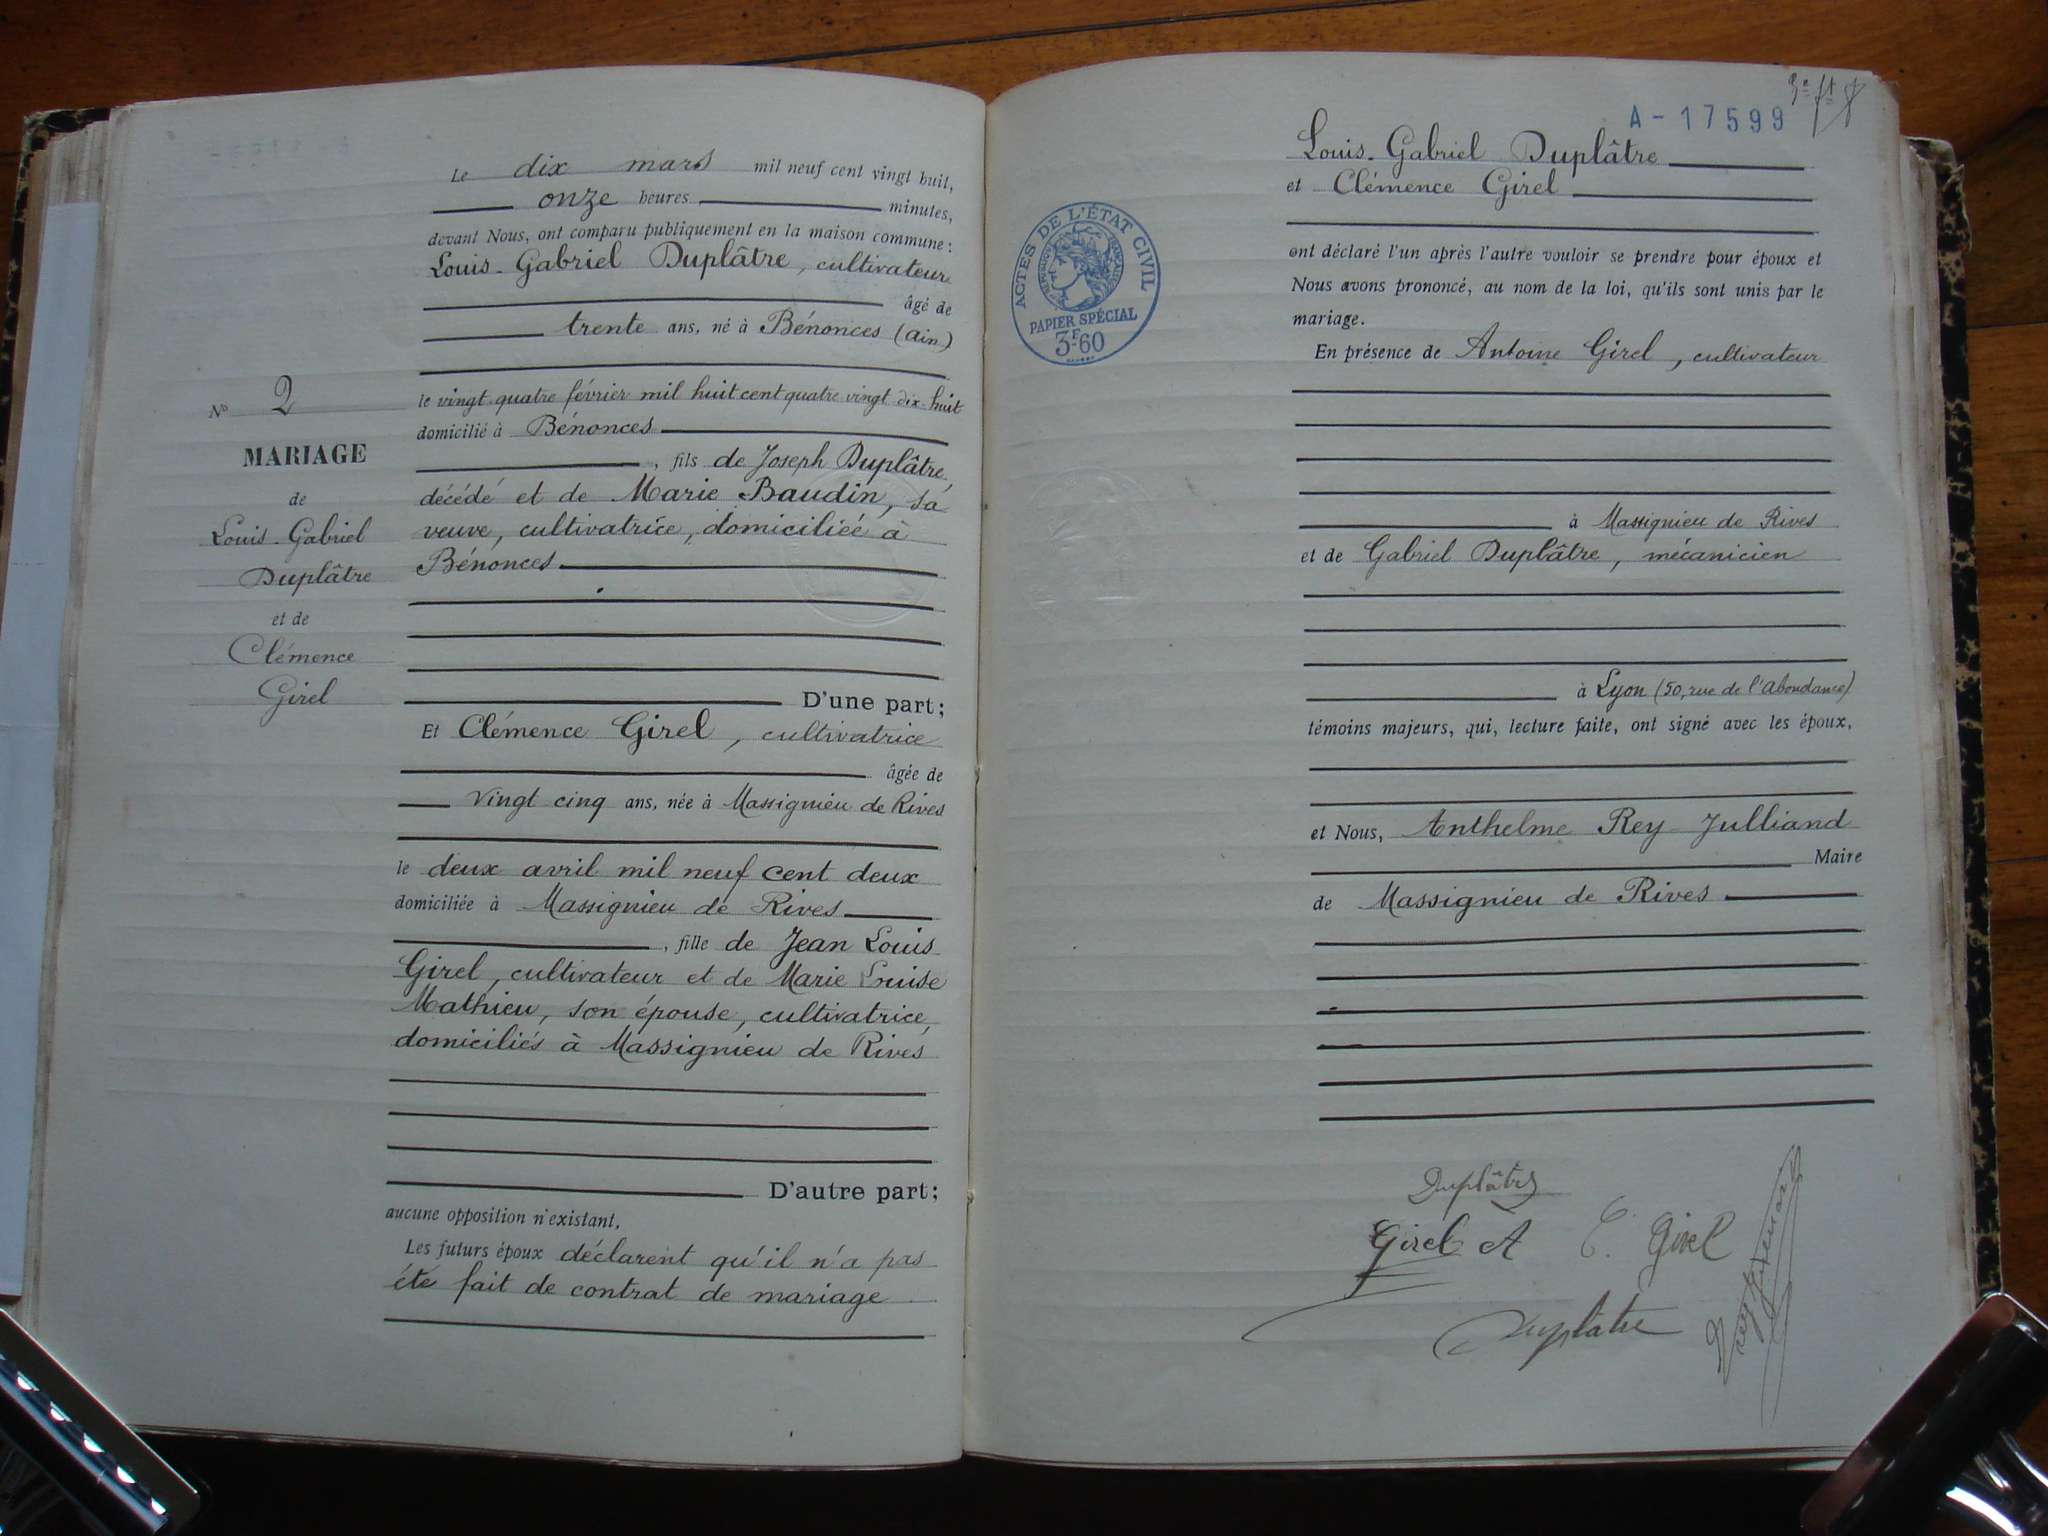 Le dix mars mil neuf cent vingt huit,
onze heures minutes,
devant Nous, ont comparu publiquement en la maison commune :
Louis-Gabriel Duplâtre, cultivateur
âgé de
trente ans, né à Bénonces (Ain)
le vingt quatre février mil huit cent quatre vingt dix-huit
domicilié à Bénonces
, fils de Joseph Duplâtre,
décédé et de Marie Baudin, sa
veuve, cultivatrice, domiciliée à
Bénonces
D'une part;
No 2
MARIAGE
de
Louis-Gabriel
Duplâtre
et de
Clémence
Girel
Et Clémence Girel, cultivatrice
âgée de
vingt cinq ans, née à Massignieu de Rives
le deux avril mil neuf cent deux
domiciliée à Massignieu de Rives
, fille de Jean Louis
Girel, cultivateur et de Marie Louise
Mathieu, son épouse, cultivatrice,
domiciliés à Massignieu de Rives
D'autre part;
aucune opposition n'existant.
Les futurs époux déclarent qu'il n'a pas
été fait de contrat de mariage
A - 17599
Louis-Gabriel Duplâtre
et Clémence Girel
ACTES DE L'ÉTAT CIVIL
PAPIER SPÉCIAL
3F60
ont déclaré l'un après l'autre vouloir se prendre pour époux et
Nous avons prononcé, au nom de la loi, qu'ils sont unis par le
mariage.
En présence de Antoine Girel, cultivateur
à Massignieu de Rives
et de Gabriel Duplâtre, mécanicien
à Lyon (50, rue de l'Abondance)
témoins majeurs, qui, lecture faite, ont signé avec les époux,
et Nous, Anthelme Rey-Julliand
Maire
de Massignieu de Rives
Duplâtre
Girel A C. Girel
Duplâtre